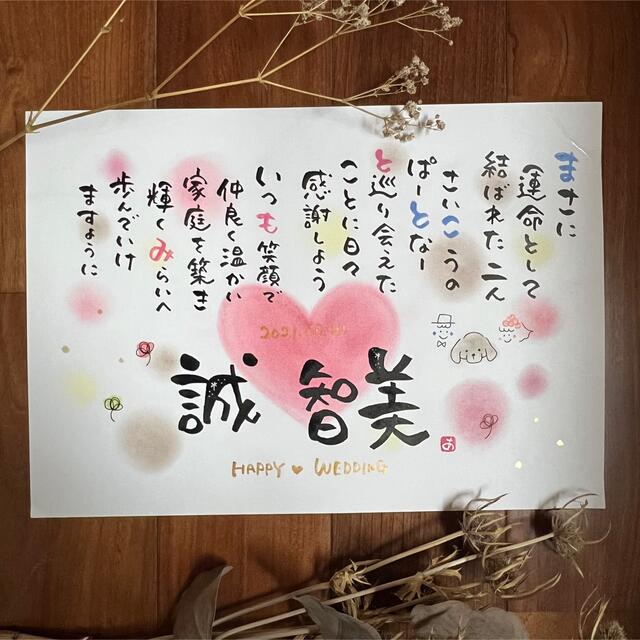 まさに
運命として
結ばれた二人
さいこうの
ぱーとなー
と巡り会えた
ことに日々
感謝しよう
いつも笑顔で
仲良く温かい
家庭を築き
輝くみらいへ
歩んでいけ
ますように
誠 智美
HAPPY ♥ WEDDING